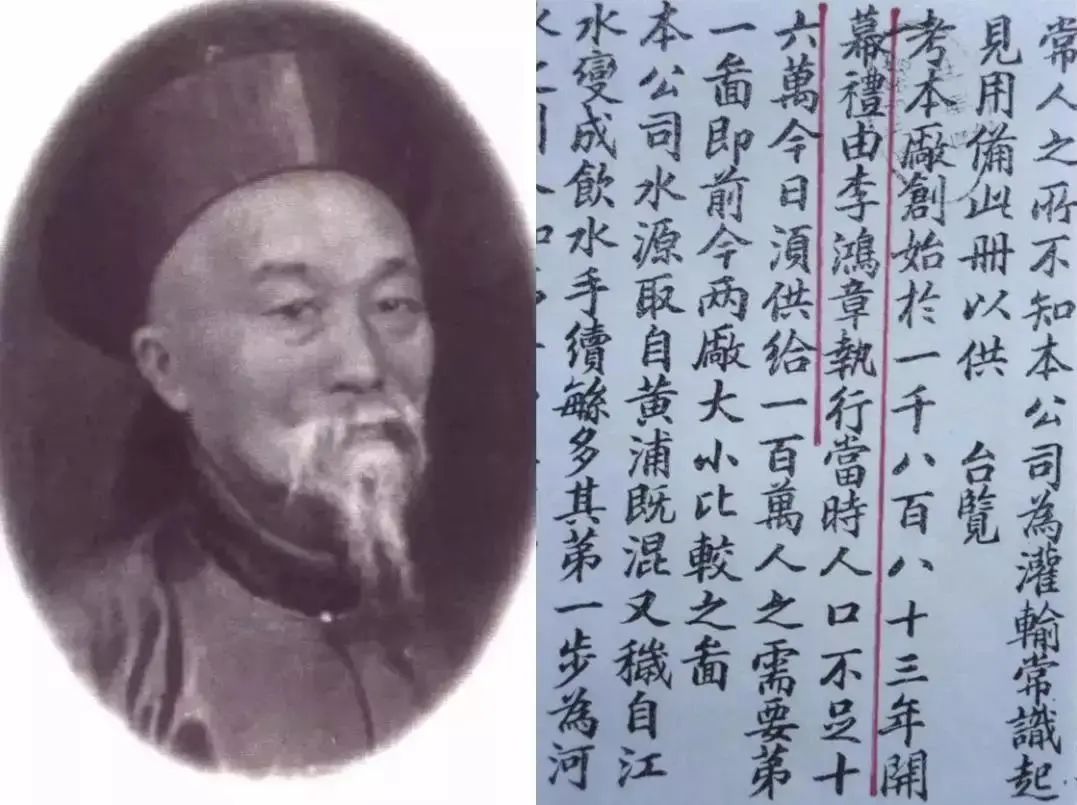 常人之所不知本公司為灌輸常識起
見用備此册以供 台覽
考本廠創始於一千八百八十三年開
幕禮由李鴻章執行當時人口不足十
六萬今日須供給一百萬人之需要弟
一啚即前今兩廠大小比較之啚
本公司水源取自黄浦既混又穢自江
水變成飲水手續繇多其弟一步為河